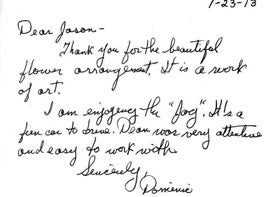 1-23-13
Dear Jason-
Thank you for the beautiful
flower arrangement. It is a work
of art.
I am enjoying the "Jag". It's a
fun car to drive. Dean was very attentive
and easy to work with.
Sincerely,
Domenic